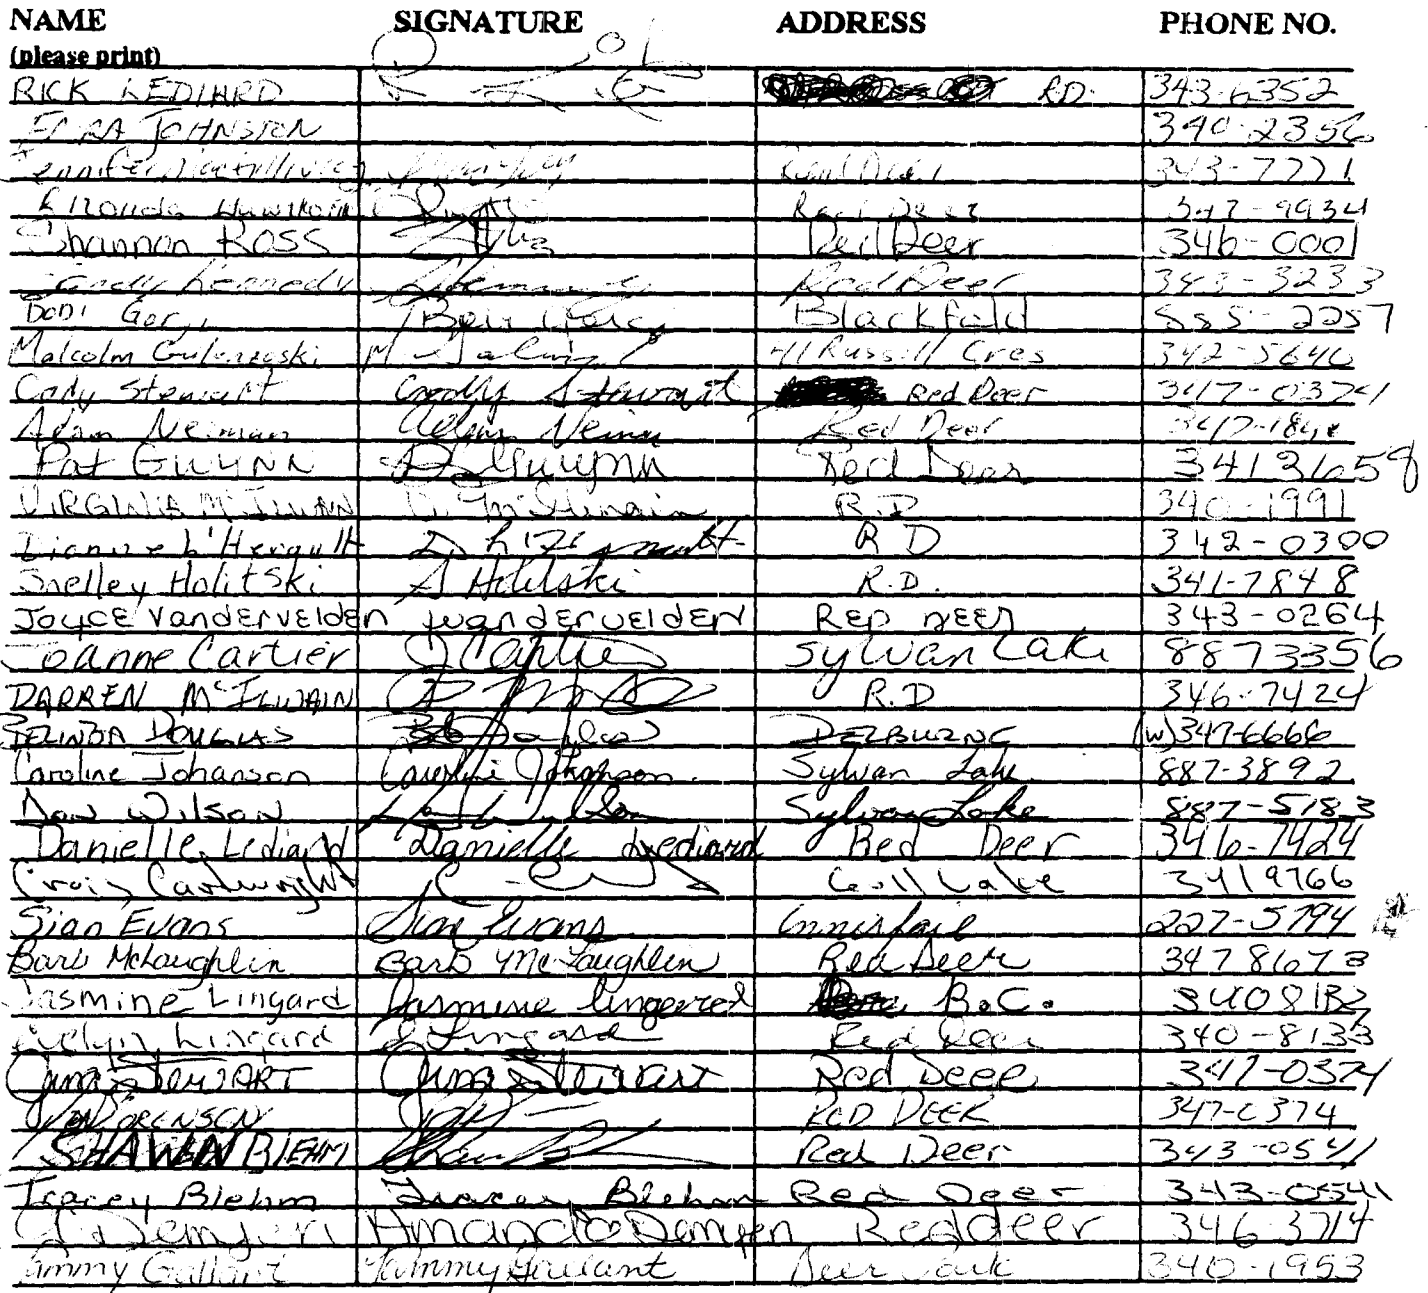 NAME SIGNATURE ADDRESS PHONE NO.
(please print)
RICK LEDIARD RD. 343-6352
JOHNSTON 340-2356
Jennifer 343-7721
Red Deer 347-9934
Shannon ROSS Red Deer 346-0001
Sandy Kennedy Red Deer 343-3233
Blackfald 885-2257
Malcolm 41 Russell Cres 342-5646
Cody Stewart Cody Stewart Red Deer 347-0374
Adam Neiman Adam Neiman Red Deer
Pat GWYNN P. Gwynn Red Deer 3413658
VIRGINIA McILWAIN V. McIlwain R.D 340-1991
Dianne L'Herault R D 342-0300
Shelley Holitski S Holitski R.D. 341-7848
JOYCE VandERVELdEN JVandERVELdEN RED DEER 343-0264
Joanne Cartier J Cartier Sylvan Lake 8873356
DARREN McILWAIN R.D 346-7424
BELINDA DOUGLAS DELBURNE (W) 347-6666
Caroline Johanson Caroline Johanson. Sylvan Lake. 887-3892
Don Wilson Sylvan Lake 887-5183
Danielle Lediard Danielle Lediard Red Deer 346-7424
Craig Cartwright Gull Lake 3419766
Sian Evans Sian Evans Innisfail 227-5794
Barb McLaughlin Barb McLaughlin Red Deer 3478673
Jasmine Lingard Jasmine Lingard B.C. 3408132
Evelyn Lingard E Lingard Red Deer 340-8133
Gina STEWART Gina Stewart Red Deer 347-0374
SORENSON RED DEER 347-0374
SHAWN BIEHM Red Deer 343-0541
Tracey Biehm Tracey Biehm Red Deer 343-0541
A Demjen Amanda Demjen Red deer 346-3714
Tammy Gallant Tammy Gallant Deer Park 340-1953